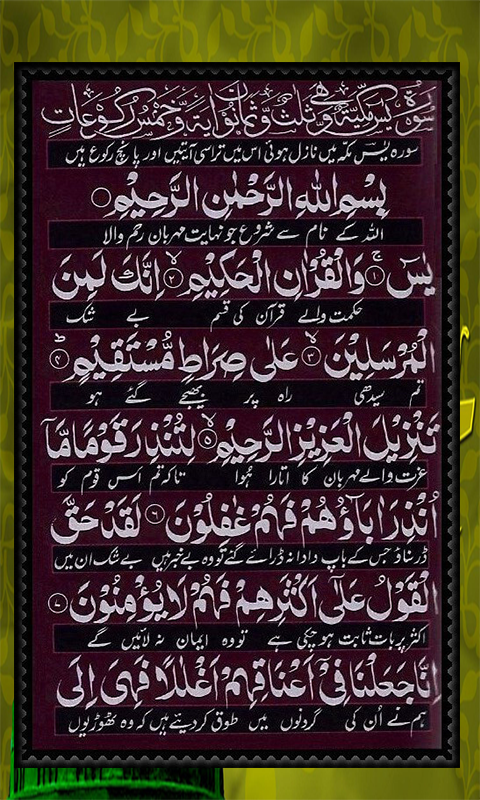 سورة يس مكية وهي ثلث و ثمانون اية و خمس ركوعات
سورہ یٰسٓ مکہ میں نازل ہوئی اس میں تراسی آیتیں اور پانچ رکوع ہیں
بِسْمِ اللهِ الرَّحْمٰنِ الرَّحِيْمِ
اللہ کے نام سے شروع جو نہایت مہربان رحم والا
يٰسٓ ۚ ﴿۱﴾ وَالْقُرْاٰنِ الْحَكِيْمِ ۙ ﴿۲﴾ اِنَّكَ لَمِنَ
حکمت والے قرآن کی قسم بے شک
الْمُرْسَلِيْنَ ۙ ﴿۳﴾ عَلٰى صِرَاطٍ مُّسْتَقِيْمٍ ؕ ﴿۴﴾
تم سیدھی راہ پر بھیجے گئے ہو
تَنْزِيْلَ الْعَزِيْزِ الرَّحِيْمِ ۙ ﴿۵﴾ لِتُنْذِرَ قَوْمًا مَّاۤ
عزت والے مہربان کا اتارا ہُوا تاکہ تم اس قوم کو
اُنْذِرَ اٰبَآؤُهُمْ فَهُمْ غٰفِلُوْنَ ﴿۶﴾ لَقَدْ حَقَّ
ڈر سناؤ جس کے باپ دادا نہ ڈرائے گئے تو وہ بے خبر ہیں بے شک ان میں
الْقَوْلُ عَلٰۤى اَكْثَرِهِمْ فَهُمْ لَا يُؤْمِنُوْنَ ﴿۷﴾
اکثر پر بات ثابت ہو چکی ہے تو وہ ایمان نہ لائیں گے
اِنَّا جَعَلْنَا فِيْۤ اَعْنَاقِهِمْ اَغْلٰلًا فَهِىَ اِلَى
ہم نے اُن کی گردنوں میں طوق کر دیئے ہیں کہ وہ ٹھوڑیوں